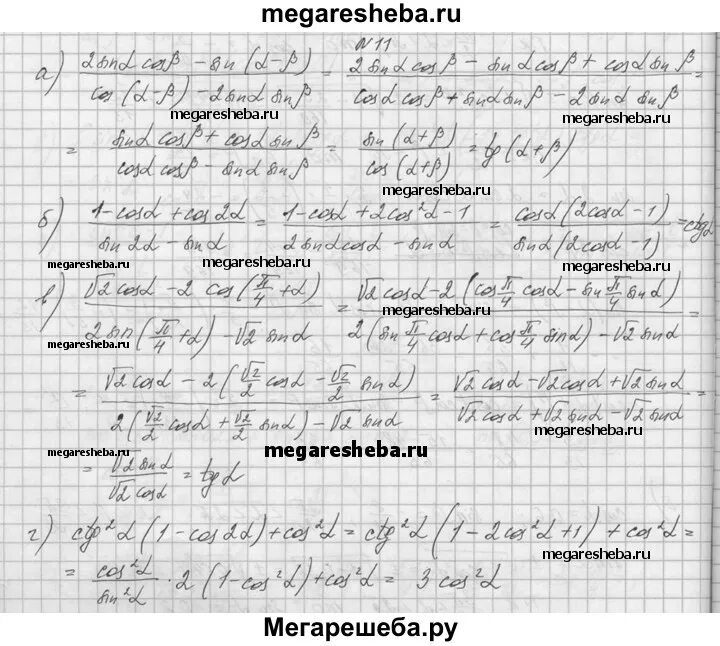 megaresheba.ru
N 11
а) (2 sinα cosβ − sin(α−β)) / (cos(α−β) − 2 sinα sinβ) = (2 sinα cosβ − sinα cosβ + cosα sinβ) / (cosα cosβ + sinα sinβ − 2 sinα sinβ) =
megaresheba.ru
megaresheba.ru
= (sinα cosβ + cosα sinβ) / (cosα cosβ − sinα sinβ) = sin(α+β) / cos(α+β) = tg(α+β)
megaresheba.ru
б) (1−cosα + cos2α) / (sin2α − sinα) = (1−cosα + 2cos²α − 1) / (2 sinα cosα − sinα) = cosα(2cosα − 1) / sinα(2cosα − 1) = ctgα
megaresheba.ru
megaresheba.ru
в) (√2 cosα − 2 cos(π/4 + α)) / (2 sin(π/4 + α) − √2 sinα) = (√2 cosα − 2(cos π/4 cosα − sin π/4 sinα)) / (2(sin π/4 cosα + cos π/4 sinα) − √2 sinα) =
megaresheba.ru
megaresheba.ru
= (√2 cosα − 2(√2/2 cosα − √2/2 sinα)) / (2(√2/2 cosα + √2/2 sinα) − √2 sinα) = (√2 cosα − √2 cosα + √2 sinα) / (√2 cosα + √2 sinα − √2 sinα) =
megaresheba.ru
megaresheba.ru
= √2 sinα / √2 cosα = tgα
megaresheba.ru
г) ctg²α (1 − cos2α) + cos²α = ctg²α (1 − 2cos²α + 1) + cos²α =
megaresheba.ru
= cos²α / sin²α · 2 (1−cos²α) + cos²α = 3 cos²α
megaresheba.ru
Мегарешеба.ру